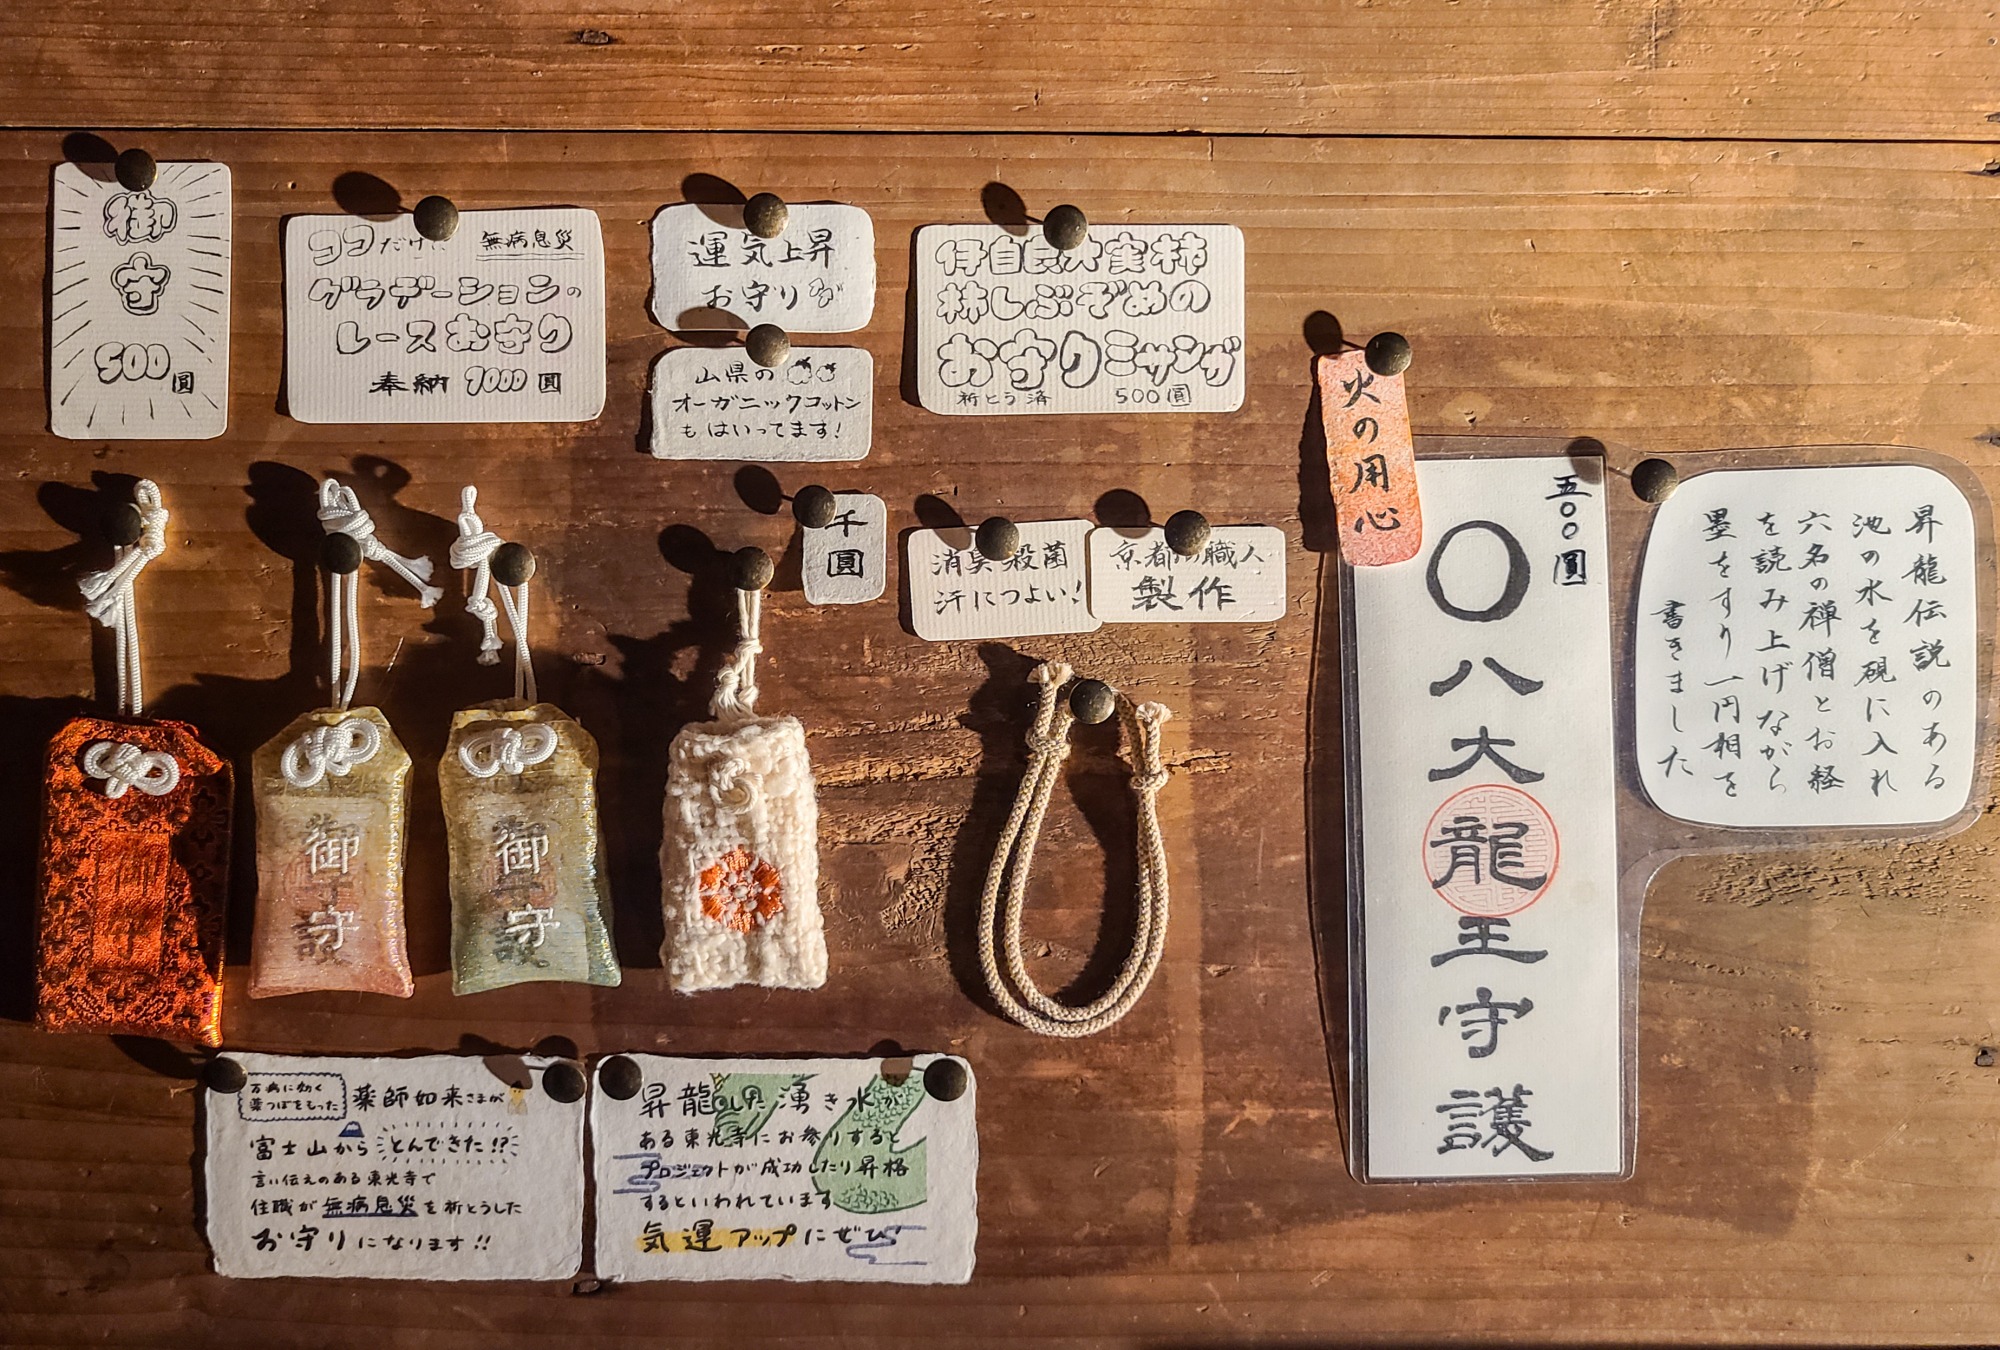 御
守
500圓
ココだけ 無病息災
グラデーションの
レースお守り
奉納 1000圓
運気上昇
お守り
山県の
オーガニックコットン
もはいってます!
伊自良大実柿
柿しぶぞめの
お守りミサンガ
祈とう済 500圓
千
圓
消臭殺菌
汗につよい!
京都の職人
製作
火の用心
五〇〇圓
〇八大龍王守護
昇龍伝説のある
池の水を硯に入れ
六名の禅僧とお経
を読み上げながら
墨をすり一円相を
書きました
御守
御守
万病に効く
薬つぼをもった
薬師如来さまが
富士山からとんできた!?
言い伝えのある東光寺で
住職が無病息災を祈とうした
お守りになります!!
昇龍した湧き水が
ある東光寺にお参りすると
プロジェクトが成功したり昇格
するといわれています
気運アップにぜひ